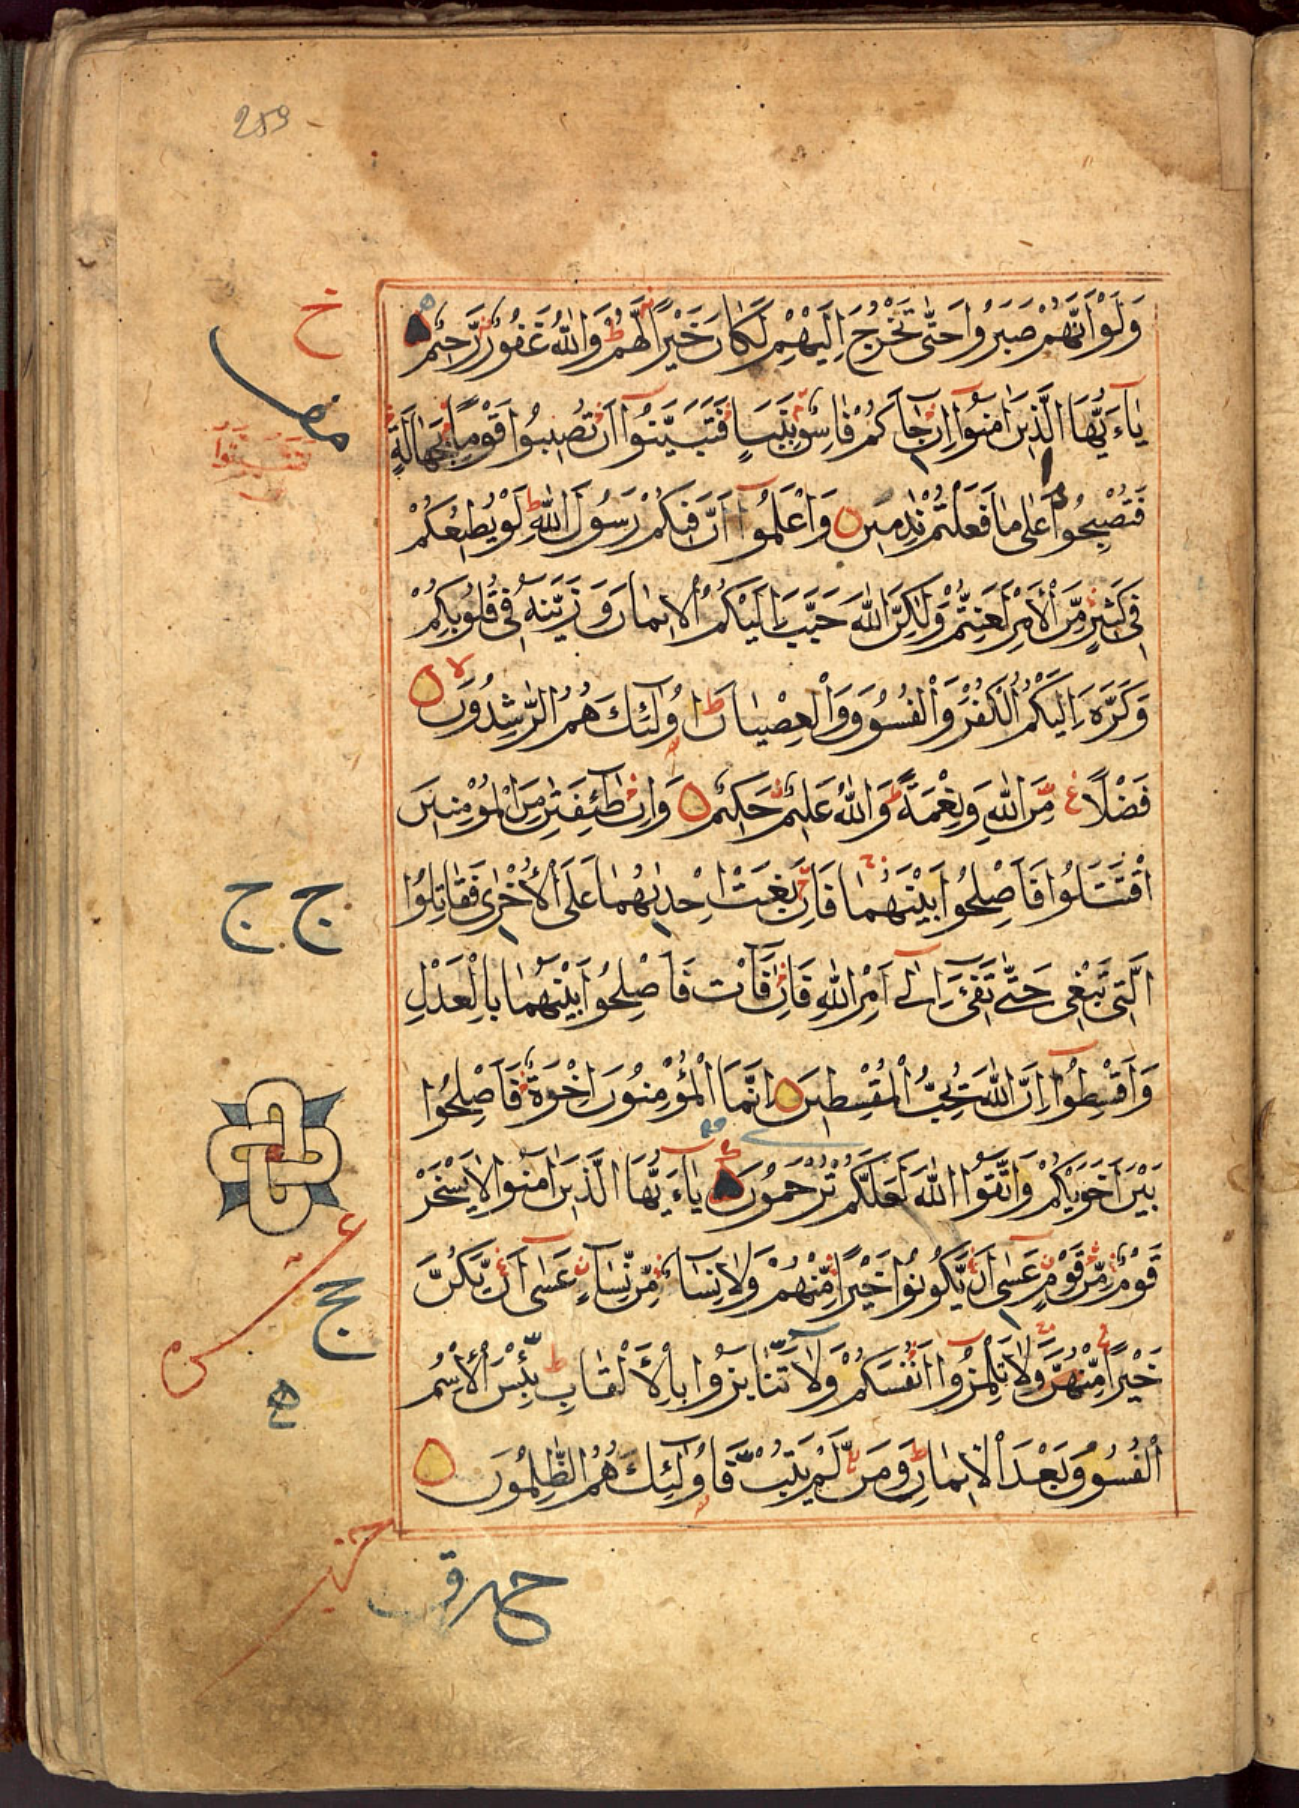 259
وَلَوْ اَنَّهُمْ صَبَرُوا حَتّٰى تَخْرُجَ اِلَيْهِمْ لَكَانَ خَيْرًا لَهُمْ ط وَاللّٰهُ غَفُورٌ رَّحِيْمٌ
يٰاۤءَيُّهَا الَّذِيْنَ اٰمَنُوْۤا اِنْ جَاۤءَكُمْ فَاسِقٌ بِنَبَاٍ فَتَبَيَّنُوْۤا اَنْ تُصِيْبُوا قَوْمًا بِجَهَالَةٍ
فَتُصْبِحُوا عَلٰى مَا فَعَلْتُمْ نٰدِمِيْنَ وَاعْلَمُوْۤا اَنَّ فِيْكُمْ رَسُوْلَ اللّٰهِ ط لَوْ يُطِيْعُكُمْ
فِيْ كَثِيْرٍ مِّنَ الْاَمْرِ لَعَنِتُّمْ وَلٰكِنَّ اللّٰهَ حَبَّبَ اِلَيْكُمُ الْاِيْمَانَ وَزَيَّنَهُ فِيْ قُلُوْبِكُمْ
وَكَرَّهَ اِلَيْكُمُ الْكُفْرَ وَالْفُسُوْقَ وَالْعِصْيَانَ ط اُولٰۤئِكَ هُمُ الرّٰشِدُوْنَ لا
فَضْلًا مِّنَ اللّٰهِ وَنِعْمَةً ط وَاللّٰهُ عَلِيْمٌ حَكِيْمٌ وَاِنْ طَاۤئِفَتٰنِ مِنَ الْمُؤْمِنِيْنَ
اقْتَتَلُوا فَاَصْلِحُوا بَيْنَهُمَا فَاِنْ بَغَتْ اِحْدٰىهُمَا عَلَى الْاُخْرٰى فَقَاتِلُوا
الَّتِيْ تَبْغِيْ حَتّٰى تَفِيْۤءَ اِلٰۤى اَمْرِ اللّٰهِ فَاِنْ فَاۤءَتْ فَاَصْلِحُوا بَيْنَهُمَا بِالْعَدْلِ
وَاَقْسِطُوْۤا اِنَّ اللّٰهَ يُحِبُّ الْمُقْسِطِيْنَ اِنَّمَا الْمُؤْمِنُوْنَ اِخْوَةٌ فَاَصْلِحُوا
بَيْنَ اَخَوَيْكُمْ وَاتَّقُوا اللّٰهَ لَعَلَّكُمْ تُرْحَمُوْنَ يٰاۤءَيُّهَا الَّذِيْنَ اٰمَنُوا لَا يَسْخَرْ
قَوْمٌ مِّنْ قَوْمٍ عَسٰۤى اَنْ يَّكُوْنُوا خَيْرًا مِّنْهُمْ وَلَا نِسَاۤءٌ مِّنْ نِّسَاۤءٍ عَسٰۤى اَنْ يَّكُنَّ
خَيْرًا مِّنْهُنَّ وَلَا تَلْمِزُوْۤا اَنْفُسَكُمْ وَلَا تَنَابَزُوا بِالْاَلْقَابِ ط بِئْسَ الْاِسْمُ
الْفُسُوْقُ بَعْدَ الْاِيْمَانِ ط وَمَنْ لَّمْ يَتُبْ فَاُولٰۤئِكَ هُمُ الظّٰلِمُوْنَ
خ
ج ج
ه